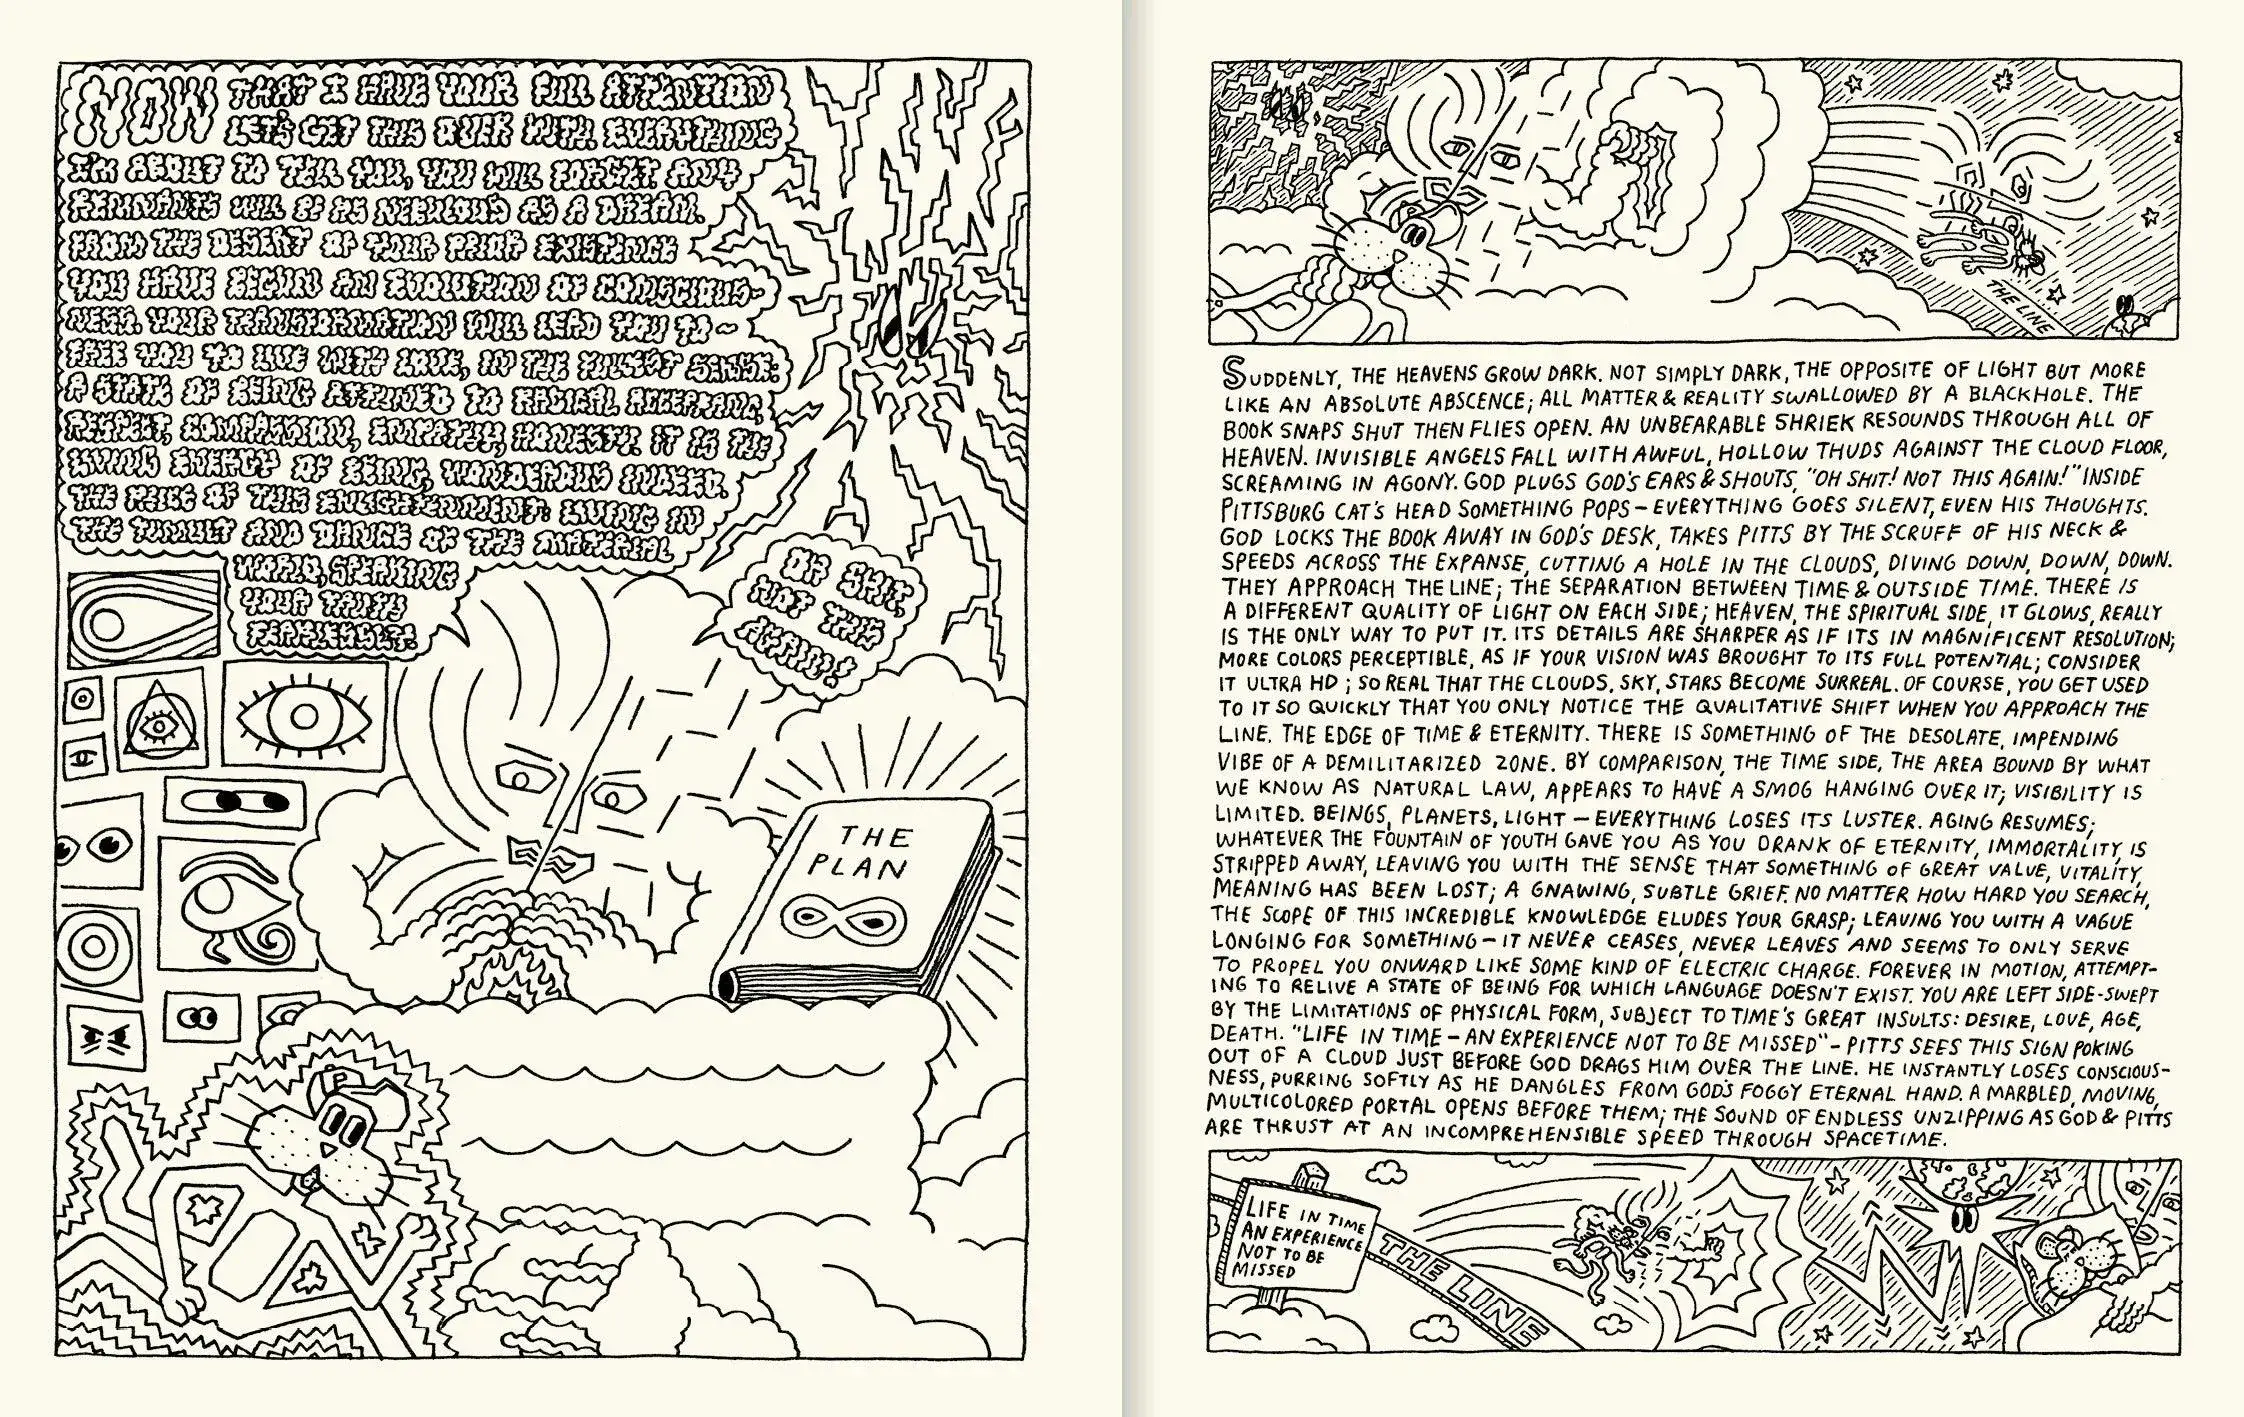 NOW THAT I HAVE YOUR FULL ATTENTION
LET'S GET THIS OVER WITH. EVERYTHING
I'M ABOUT TO TELL YOU, YOU WILL FORGET. ANY
REMNANTS WILL BE AS NEBULOUS AS A DREAM.
FROM THE DESERT OF YOUR PRIOR EXISTENCE
YOU HAVE BEGUN AN EVOLUTION OF CONSCIOUS-
NESS. YOUR TRANSFORMATION WILL LEAD YOU TO~
FREE YOU TO LIVE WITH LOVE, IN THE FULLEST SENSE:
A STATE OF BEING ATTUNED TO RADICAL ACCEPTANCE,
RESPECT, COMPASSION, EMPATHY, HONESTY. IT IS THE
LIVING ENERGY OF BEING, WONDERFUL INDEED.
THE PRICE OF THIS ENLIGHTENMENT: LIVING IN
THE TUMULT AND DANCE OF THE MATERIAL
WORLD, SPEAKING
YOUR TRUTH
FEARLESSLY.
OH SHIT,
NOT THIS
AGAIN!
THE
PLAN
P
THE LINE
SUDDENLY, THE HEAVENS GROW DARK. NOT SIMPLY DARK, THE OPPOSITE OF LIGHT BUT MORE
LIKE AN ABSOLUTE ABSCENCE; ALL MATTER & REALITY SWALLOWED BY A BLACKHOLE. THE
BOOK SNAPS SHUT THEN FLIES OPEN. AN UNBEARABLE SHRIEK RESOUNDS THROUGH ALL OF
HEAVEN. INVISIBLE ANGELS FALL WITH AWFUL, HOLLOW THUDS AGAINST THE CLOUD FLOOR,
SCREAMING IN AGONY. GOD PLUGS GOD'S EARS & SHOUTS, "OH SHIT! NOT THIS AGAIN!" INSIDE
PITTSBURG CAT'S HEAD SOMETHING POPS – EVERYTHING GOES SILENT, EVEN HIS THOUGHTS.
GOD LOCKS THE BOOK AWAY IN GOD'S DESK, TAKES PITTS BY THE SCRUFF OF HIS NECK &
SPEEDS ACROSS THE EXPANSE, CUTTING A HOLE IN THE CLOUDS, DIVING DOWN, DOWN, DOWN.
THEY APPROACH THE LINE; THE SEPARATION BETWEEN TIME & OUTSIDE TIME. THERE IS
A DIFFERENT QUALITY OF LIGHT ON EACH SIDE; HEAVEN, THE SPIRITUAL SIDE, IT GLOWS, REALLY
IS THE ONLY WAY TO PUT IT. ITS DETAILS ARE SHARPER AS IF ITS IN MAGNIFICENT RESOLUTION;
MORE COLORS PERCEPTIBLE, AS IF YOUR VISION WAS BROUGHT TO ITS FULL POTENTIAL; CONSIDER
IT ULTRA HD; SO REAL THAT THE CLOUDS, SKY, STARS BECOME SURREAL. OF COURSE, YOU GET USED
TO IT SO QUICKLY THAT YOU ONLY NOTICE THE QUALITATIVE SHIFT WHEN YOU APPROACH THE
LINE. THE EDGE OF TIME & ETERNITY. THERE IS SOMETHING OF THE DESOLATE, IMPENDING
VIBE OF A DEMILITARIZED ZONE. BY COMPARISON, THE TIME SIDE, THE AREA BOUND BY WHAT
WE KNOW AS NATURAL LAW, APPEARS TO HAVE A SMOG HANGING OVER IT; VISIBILITY IS
LIMITED. BEINGS, PLANETS, LIGHT – EVERYTHING LOSES ITS LUSTER. AGING RESUMES;
WHATEVER THE FOUNTAIN OF YOUTH GAVE YOU AS YOU DRANK OF ETERNITY, IMMORTALITY, IS
STRIPPED AWAY, LEAVING YOU WITH THE SENSE THAT SOMETHING OF GREAT VALUE, VITALITY,
MEANING HAS BEEN LOST; A GNAWING, SUBTLE GRIEF. NO MATTER HOW HARD YOU SEARCH,
THE SCOPE OF THIS INCREDIBLE KNOWLEDGE ELUDES YOUR GRASP; LEAVING YOU WITH A VAGUE
LONGING FOR SOMETHING – IT NEVER CEASES, NEVER LEAVES AND SEEMS TO ONLY SERVE
TO PROPEL YOU ONWARD LIKE SOME KIND OF ELECTRIC CHARGE. FOREVER IN MOTION, ATTEMPT-
ING TO RELIVE A STATE OF BEING FOR WHICH LANGUAGE DOESN'T EXIST. YOU ARE LEFT SIDE-SWEPT
BY THE LIMITATIONS OF PHYSICAL FORM, SUBJECT TO TIME'S GREAT INSULTS: DESIRE, LOVE, AGE,
DEATH. "LIFE IN TIME – AN EXPERIENCE NOT TO BE MISSED" – PITTS SEES THIS SIGN POKING
OUT OF A CLOUD JUST BEFORE GOD DRAGS HIM OVER THE LINE. HE INSTANTLY LOSES CONSCIOUS-
NESS, PURRING SOFTLY AS HE DANGLES FROM GOD'S FOGGY ETERNAL HAND. A MARBLED, MOVING,
MULTICOLORED PORTAL OPENS BEFORE THEM; THE SOUND OF ENDLESS UNZIPPING AS GOD & PITTS
ARE THRUST AT AN INCOMPREHENSIBLE SPEED THROUGH SPACETIME.
LIFE IN TIME
AN EXPERIENCE
NOT TO BE
MISSED
THE LINE